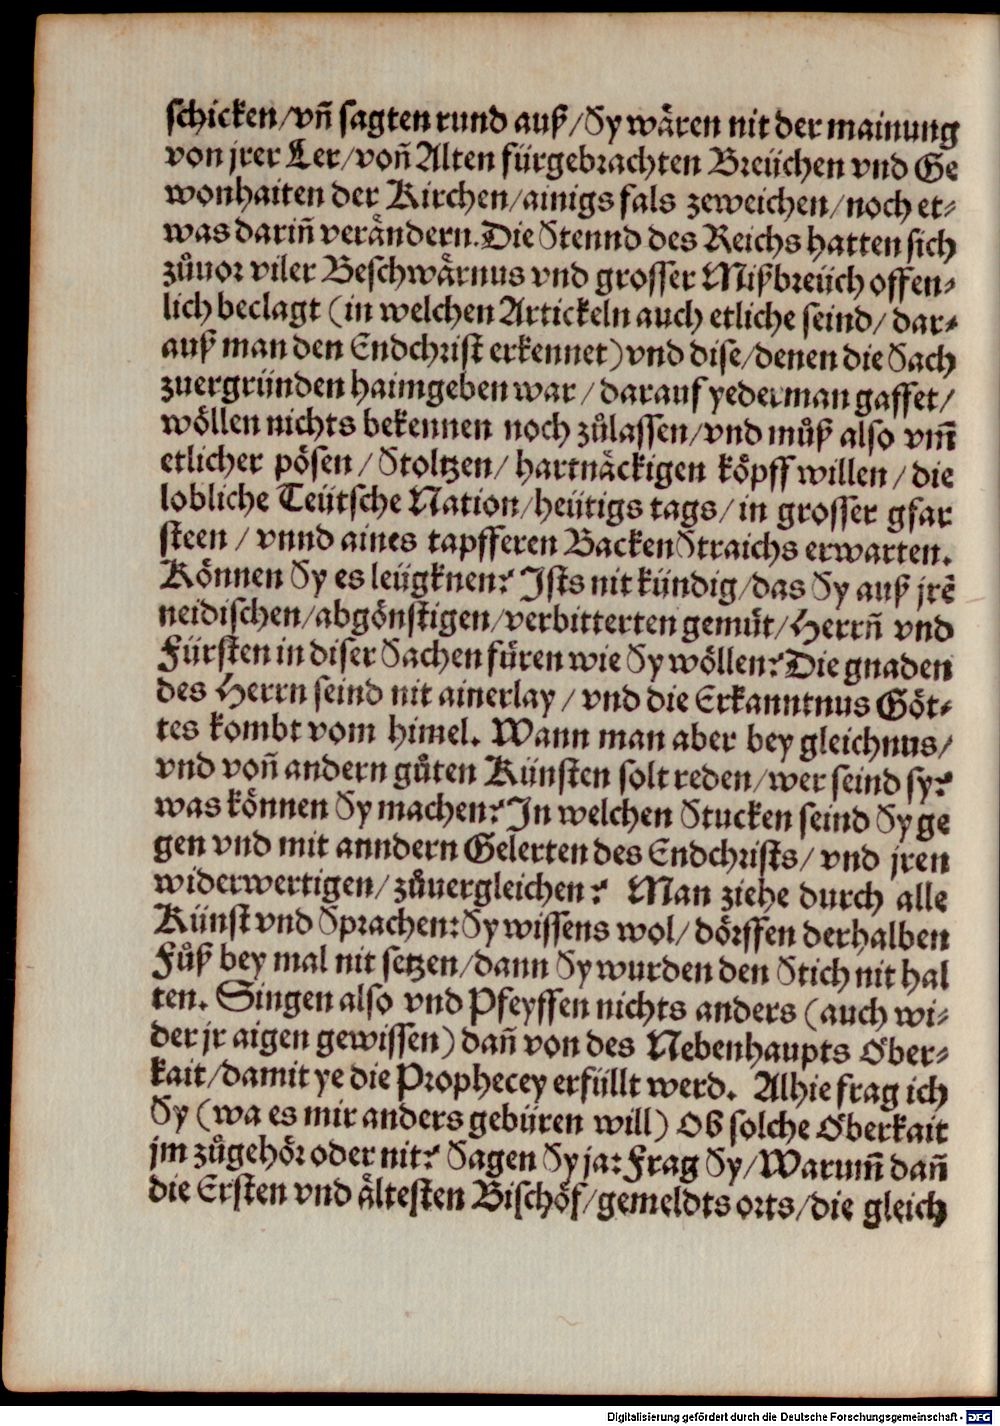 schicken/vn̄ sagten rund auß/Sy wären nit der mainung
von jrer Ler/von̄ Alten fürgebrachten Breüchen vnd Ge
wonhaiten der Kirchen/ainigs fals zeweichen/noch et⸗
was darin̄ verändern. Die Stennd des Reichs hatten sich
zůuor viler Beschwärnus vnd grosser Mißbreüch offen⸗
lich beclagt (in welchen Artickeln auch etliche seind/dar⸗
auß man den Endchrist erkennet) vnd dise/denen die Sach
zuergründen haimgeben war/darauf yederman gaffet/
wöllen nichts bekennen noch zůlassen/vnd můß also vm̄
etlicher pösen/Stoltzen/hartnäckigen köpff willen/die
lobliche Teütsche Nation/heütigs tags/in grosser gfar
steen/vnnd aines tapfferen BackenStraichs erwarten.
Können Sy es leügknen? Ists nit kündig/das Sy auß jrē
neidischen/abgönstigen/verbitterten gemüt/Herrn̄ vnd
Fürsten in diser Sachen füren wie Sy wöllen? Die gnaden
des Herrn seind nit ainerlay/vnd die Erkanntnus Göt⸗
tes kombt vom himel. Wann man aber bey gleichnus/
vnd von̄ andern gůten Künsten solt reden/wer seind sy?
was können Sy machen? In welchen Stucken seind Sy ge
gen vnd mit anndern Gelerten des Endchrists/vnd jren
widerwertigen/zůuergleichen? Man ziehe durch alle
Künst vnd Sprachen: Sy wissens wol/dörffen derhalben
Fůß bey mal nit setzen/dann Sy wurden den Stich nit hal
ten. Singen also vnd Pfeyffen nichts anders (auch wi⸗
der jr aigen gewissen) dan̄ von des Nebenhaupts Öber⸗
kait/damit ye die Prophecey erfüllt werd. Alhie frag ich
Sy (wa es mir anders gebüren will) Ob solche Öberkait
jm zůgehör oder nit? Sagen Sy ja: Frag Sy/Warum̄ dan̄
die Ersten vnd ältesten Bischöf/gemeldts orts/die gleich
Digitalisierung gefördert durch die Deutsche Forschungsgemeinschaft - DFG